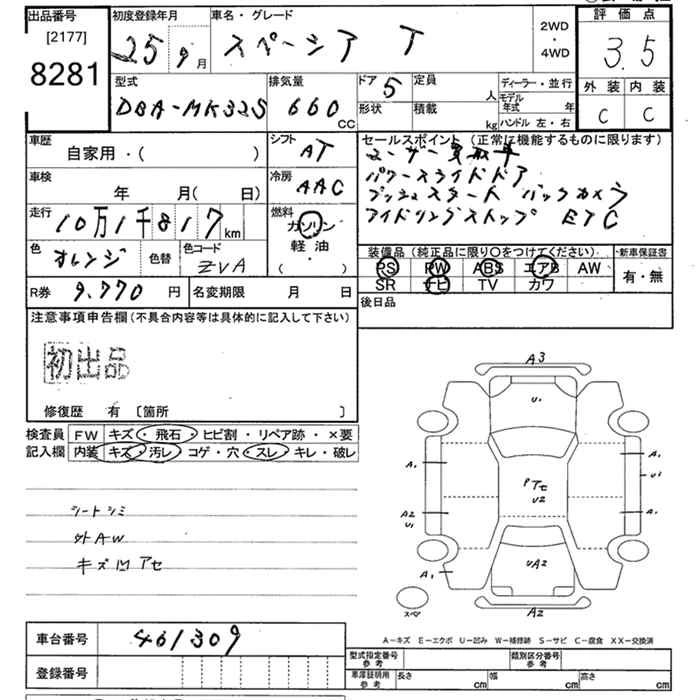 出品番号 [2177] 8281
初度登録年月 25年9月
車名・グレード スペーシア T
2WD・4WD
評価点 3.5
外装 内装
C C
型式 DBA-MK32S
排気量 660 CC
ドア 5
形状
定員 人
積載 kg
ディーラー・並行
モデル年式 年
ハンドル 左・右
車歴 自家用・( )
シフト AT
車検 年 月( 日)
冷房 AAC
走行 10万1千817km
燃料 ガソリン 軽油・( )
色 オレンジ 色替
色コード ZVA
セールスポイント (正常に機能するものに限ります)
ユーザー買取車
パワースライドドア
プッシュスタート バックカメラ
アイドリングストップ ETC
装備品(純正品に限り○をつけてください)
PS PW ABS エアB AW
SR ナビ TV カワ
新車保証書 有・無
R券 9,770円
名変期限 月 日
後日品
注意事項申告欄(不具合内容等は具体的に記入して下さい)
初出品
修復歴 有 〔箇所 〕
検査員記入欄
FW キズ・飛石・ヒビ割・リペア跡・×要
内装 キズ・汚レ・コゲ・穴・スレ・キレ・破レ
シートシミ
外AW
キズ凹アセ
A3
U1
A1
A1
U1
PアセU2
A2
U1
A1
UA2
A1
スペア
A2
A-キズ E-エクボ U-凹み W-補修跡 S-サビ C-腐食 XX-交換済
車台番号 461309
登録番号
型式指定番号 参考
類別区分番号 参考
車庫証明用 参考
長さ cm 幅 cm 高さ cm